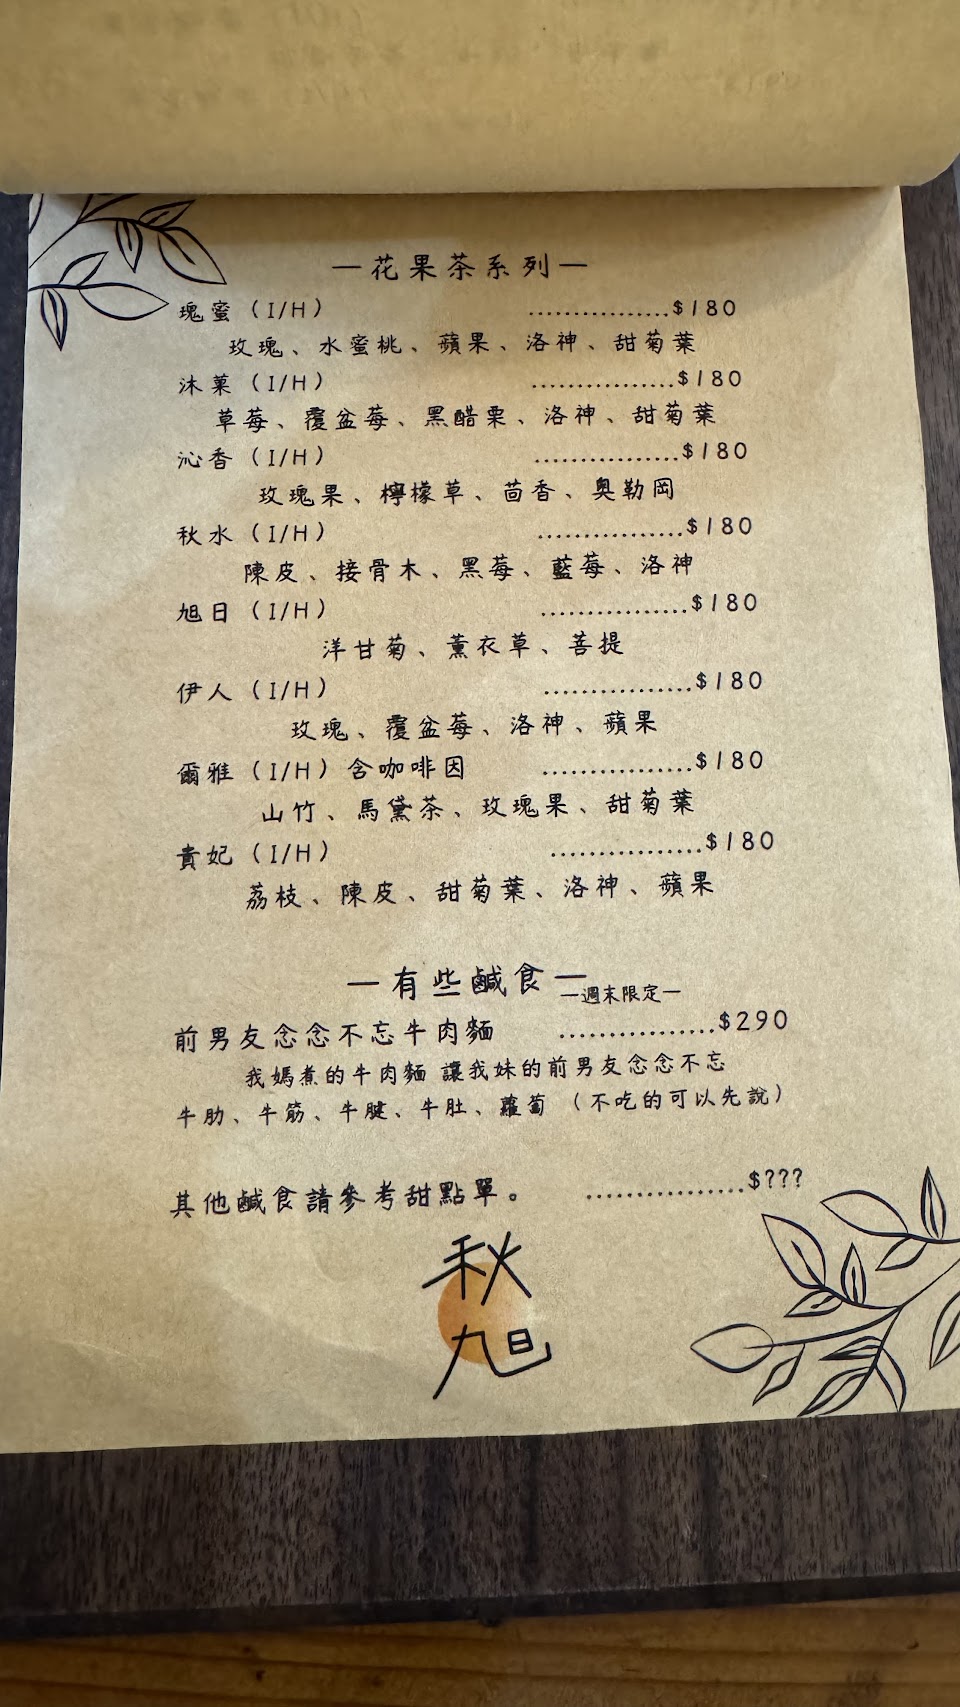 —花果茶系列—
瑰蜜（I/H） ................$180
玫瑰、水蜜桃、蘋果、洛神、甜菊葉
沐菓（I/H） ................$180
草莓、覆盆莓、黑醋栗、洛神、甜菊葉
沁香（I/H） ................$180
玫瑰果、檸檬草、茴香、奧勒岡
秋水（I/H） ................$180
陳皮、接骨木、黑莓、藍莓、洛神
旭日（I/H） ................$180
洋甘菊、薰衣草、菩提
伊人（I/H） ................$180
玫瑰、覆盆莓、洛神、蘋果
爾雅（I/H）含咖啡因 ................$180
山竹、馬黛茶、玫瑰果、甜菊葉
貴妃（I/H） ................$180
荔枝、陳皮、甜菊葉、洛神、蘋果
—有些鹹食—
—週末限定—
前男友念念不忘牛肉麵 ................$290
我媽煮的牛肉麵 讓我妹的前男友念念不忘
牛肋、牛筋、牛腱、牛肚、蘿蔔（不吃的可以先說）
其他鹹食請參考甜點單。 ................$???
秋
旭